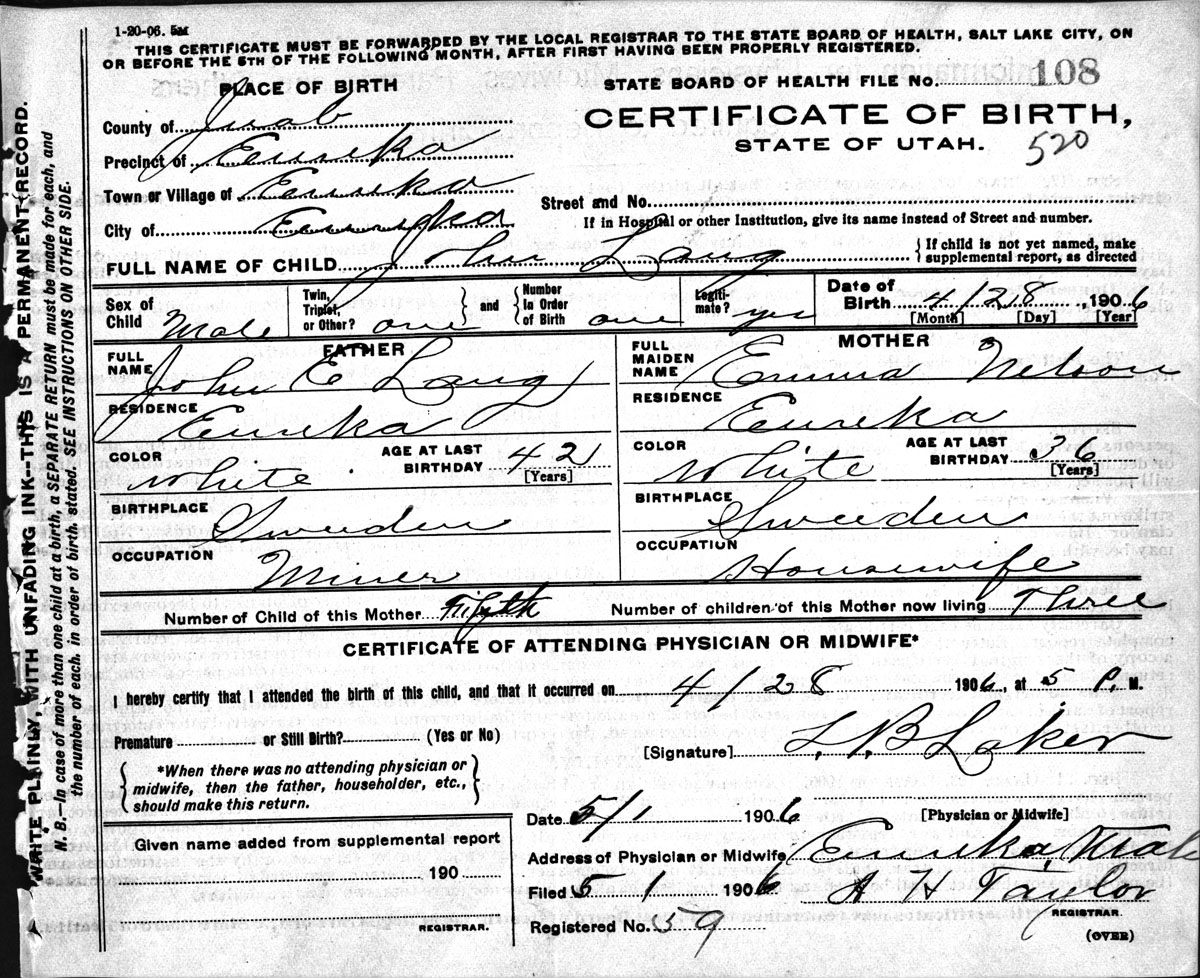 1-20-06. 5M
THIS CERTIFICATE MUST BE FORWARDED BY THE LOCAL REGISTRAR TO THE STATE BOARD OF HEALTH, SALT LAKE CITY, ON
OR BEFORE THE 5TH OF THE FOLLOWING MONTH, AFTER FIRST HAVING BEEN PROPERLY REGISTERED.
PLACE OF BIRTH
STATE BOARD OF HEALTH FILE NO. 108
CERTIFICATE OF BIRTH,
STATE OF UTAH.
520
County of Juab
Precinct of Eureka
Town or Village of Eureka
City of Eureka
Street and No.
If in Hospital or other Institution, give its name instead of Street and number.
FULL NAME OF CHILD John Lang
{ If child is not yet named, make
supplemental report, as directed
Sex of Child Male
Twin, Triplet, or Other? one
and
Number in Order of Birth one
Legitimate? yes
Date of Birth 4/28, 1906
[Month] [Day] [Year]
FATHER
FULL NAME John E Lang
RESIDENCE Eureka
COLOR White
AGE AT LAST BIRTHDAY 42
[Years]
BIRTHPLACE Sweden
OCCUPATION Miner
MOTHER
FULL MAIDEN NAME Emma Nelson
RESIDENCE Eureka
COLOR White
AGE AT LAST BIRTHDAY 36
[Years]
BIRTHPLACE Sweden
OCCUPATION Housewife
Number of Child of this Mother Fifth
Number of children of this Mother now living Three
CERTIFICATE OF ATTENDING PHYSICIAN OR MIDWIFE*
I hereby certify that I attended the birth of this child, and that it occurred on 4/28 1906, at 5 P. M.
Premature or Still Birth? (Yes or No)
[Signature] L. B Laker
{ *When there was no attending physician or
midwife, then the father, householder, etc.,
should make this return. }
Date 5/1 1906
[Physician or Midwife]
Given name added from supplemental report
190
REGISTRAR.
Address of Physician or Midwife Eureka, Utah
Filed 5 1 1906 A H Taylor
REGISTRAR.
Registered No. 59
(OVER)
WRITE PLAINLY, WITH UNFADING INK--THIS IS A PERMANENT RECORD.
N. B.--In case of more than one child at a birth, a SEPARATE RETURN must be made for each, and
the number of each, in order of birth, stated. SEE INSTRUCTIONS ON OTHER SIDE.